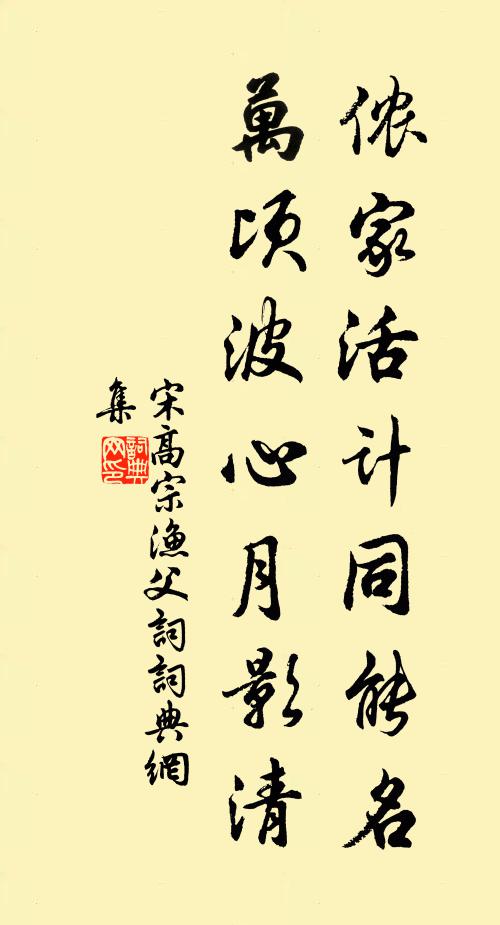 侬家活計同能名
萬頃波心月影清
宋高宗漁父詞詞典網
集
詞典网印